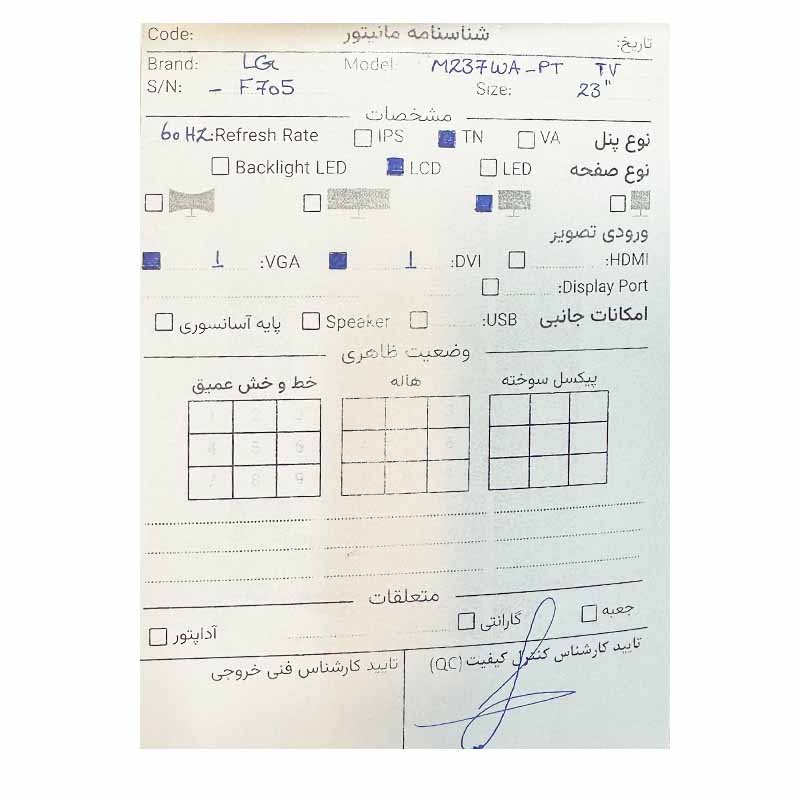 Code: شناسنامه مانیتور تاریخ:
Brand: LG Model: M237WA-PT TV
S/N: - F705 Size: 23"
مشخصات
نوع پنل VA TN IPS Refresh Rate: 60 HZ
نوع صفحه LED LCD Backlight LED
ورودی تصویر
HDMI: DVI: 1 VGA: 1
Display Port:
امکانات جانبی USB: Speaker پایه آسانسوری
وضعیت ظاهری
پیکسل سوخته هاله خط و خش عمیق
3 1 2 3
6 4 5 6
7 8 9
متعلقات
جعبه گارانتی آداپتور
تایید کارشناس کنترل کیفیت (QC) تایید کارشناس فنی خروجی